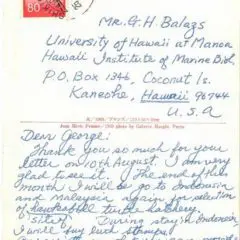 80
Mr. G. H. Balazs
University of Hawaii at Manoa
Hawaii Institute of Marine Biol.
P.O. Box 1346, Coconut Is.
Kaneohe, Hawaii 96744
U. S. A
Dear George:
Thank you so much for your
letter on 10th August. I am very
glad to see it. The end of this
month I will be go to Indonesia
and Malaysia again for selection
of turtle hatchery
site. During stay in Indonesia
I will buy